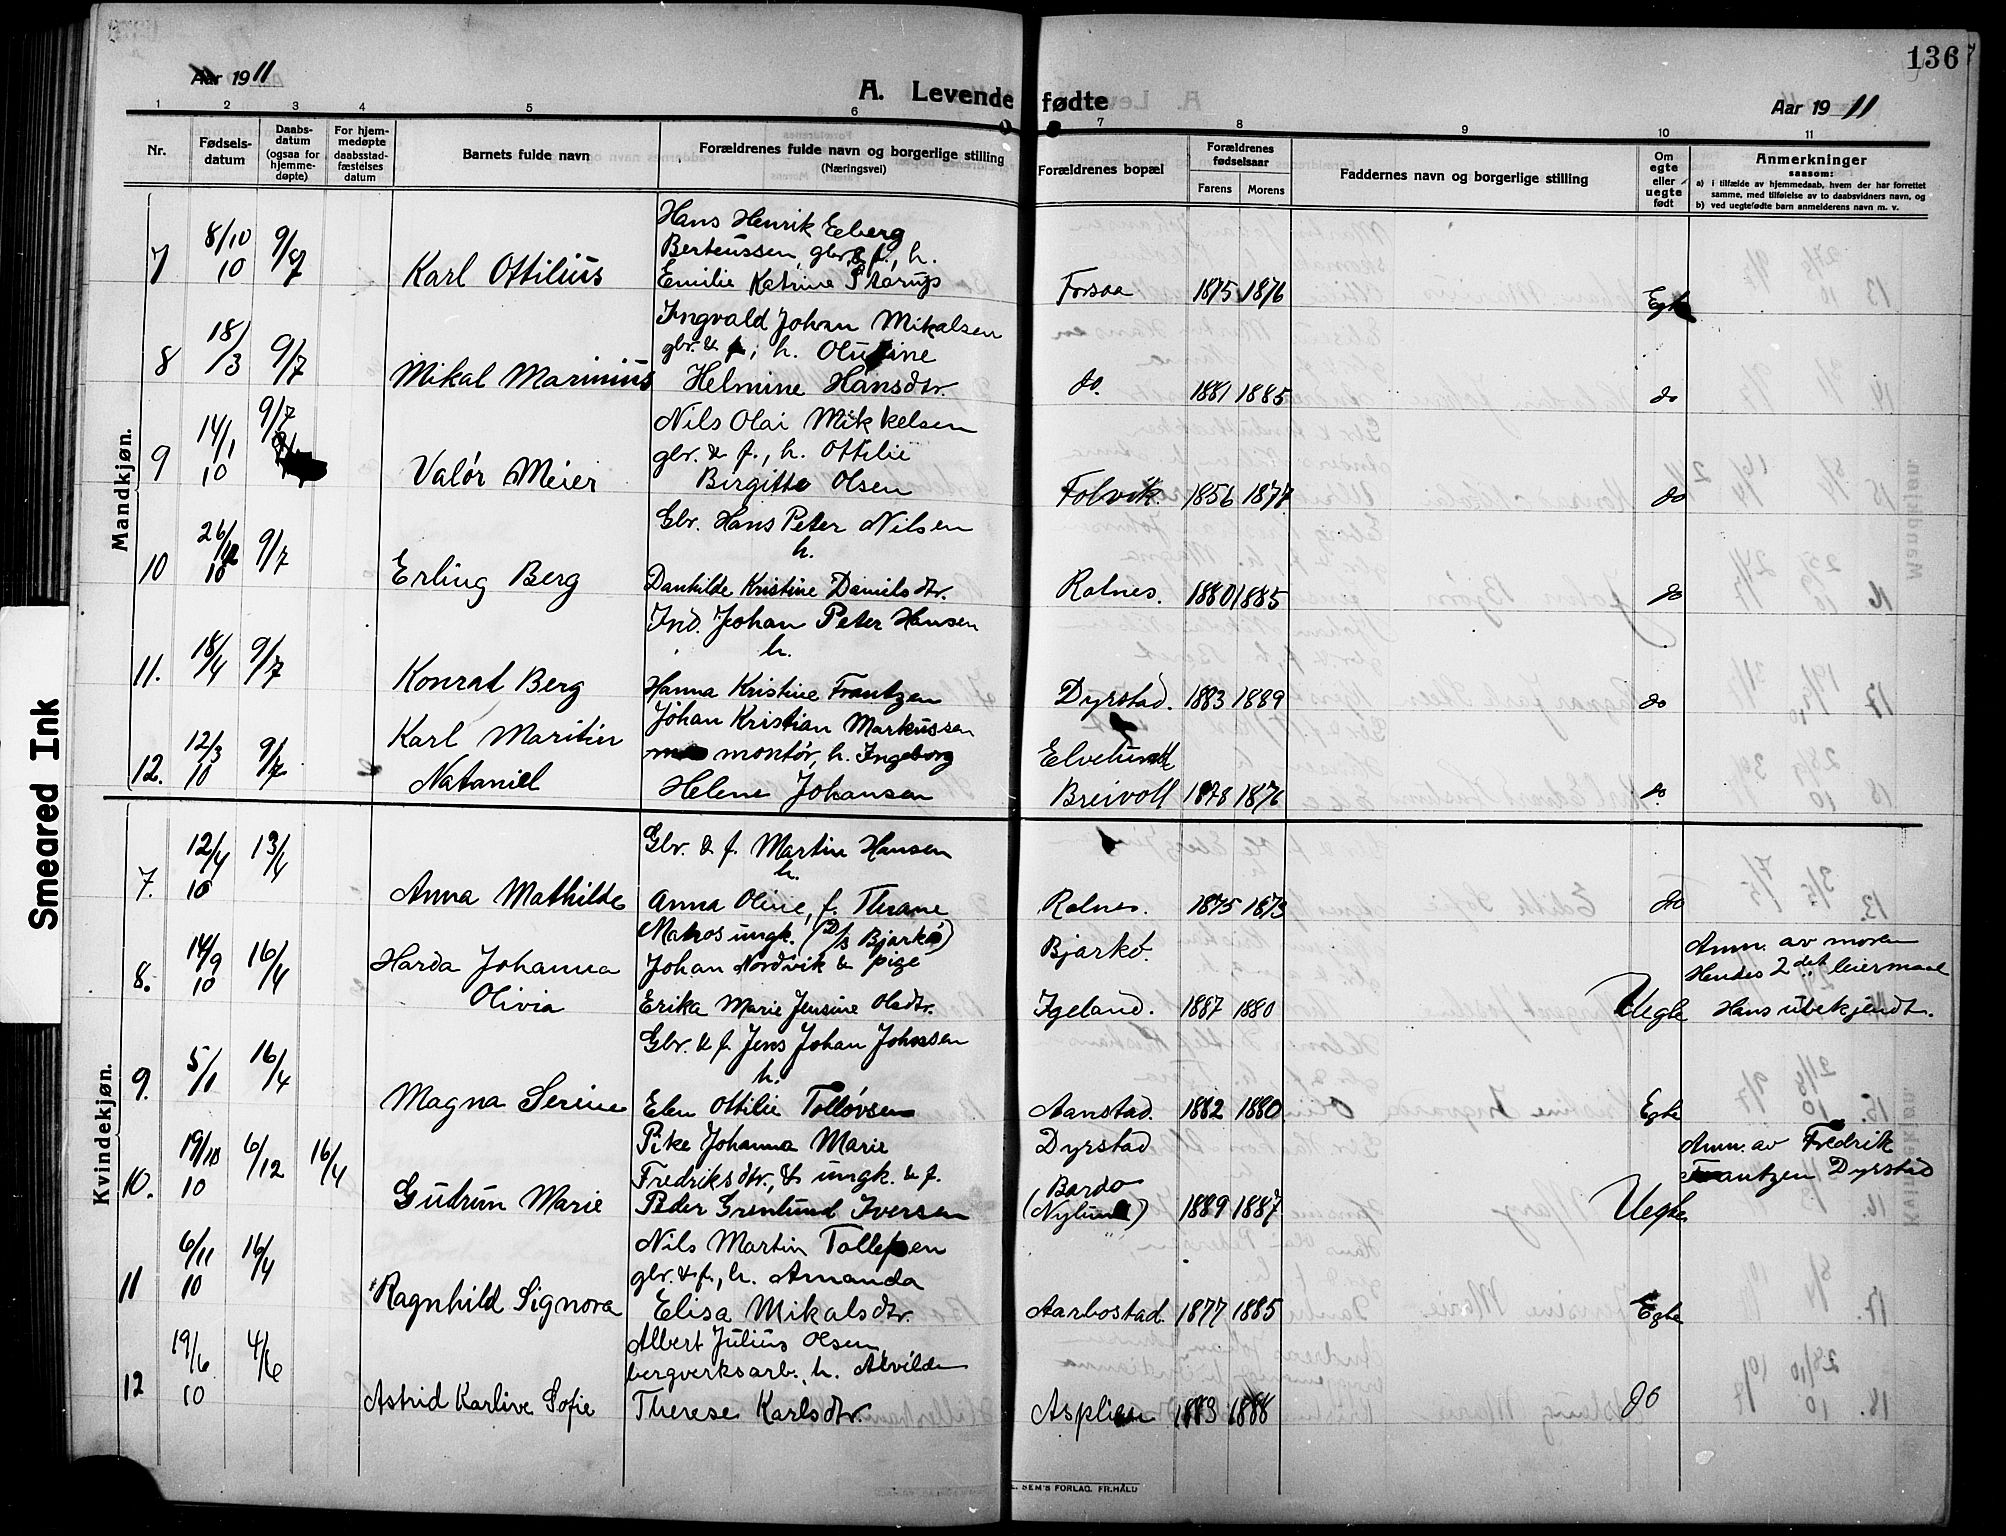 136
Aar 1911
A. Levende fødte
Aar 1911
1 2 3 4 5 6 7 8 9 10 11
Nr.
Fødsels-
datum
Daabs-
datum
(ogsaa for
hjemme-
døpte)
For hjem-
medøpte
daabsstad-
fæstelses
datum
Barnets fulde navn
Forældrenes fulde navn og borgerlige stilling
(Næringsvei)
Forældrenes bopæl
Forældrenes
fødselsaar
Farens Morens
Faddernes navn og borgerlige stilling
Om
egte
eller
uegte
født
Anmerkninger
saasom:
a) i tilfælde av hjemmedaab, hvem der har forrettet
samme, med tilføielse av to daabsvidners navn, og
b) ved uegtefødte barn anmelderens navn m. v.
Mandkjøn.
Hans Henrik Eeberg
8/10 9/7 Berteussen, gbr. & f., h.
7 10 Karl Ottilius Emilie Katrine Storup Forsaa 1875 1876 Egte
18/3 9/7 Ingvald Johan Mikalsen
8 gbr. & f., h.
Mikal Marinius Helmine Hansdtr. do. 1881 1885 do
14/1 9/7 Nils Olai Mikkelsen
9 10 gbr. & f., h. Ottilie
Valør Meier Birgitte Olsen Folvik. 1856 1877 do
26/12 9/7 Gbr. Hans Peter Nilsen
10 10 h.
Erling Berg Danhilde Kristine Danielsdtr. Rolnes. 1880 1885 do
Ind. Johan Peter Hansen
11. 18/4 9/7 h.
Konrad Berg Hanna Kristine Frantzen Dyrstad. 1883 1889 do
12/3 9/7 Karl Maritin Johan Kristian Markussen
12. 10 montør, h. Ingeborg Elvelund
Nataniel Helene Johansen Breivoll 1878 1876 do
Kvindekjøn.
12/4 13/4 Gbr. & f. Martin Hansen
7. 10 h.
Anna Mathilde Anna Oline, f. Thrane Rolnes. 1875 1873 do
14/9 16/4 Matros ungk. (D/s Bjarkø) Bjarkø. Anm. av moren
8. 10 Harda Johanna Johan Nordvik & pige Hendes 2det leiermaal
Olivia Erika Marie Jensine Olsdtr. Igeland. 1887 1880 Uegte Hans ubekjendt.
Gbr. & f. Jens Johan Johnsen
9. 5/1 16/4 h.
Magna Serine Elen Ottilie Tolløvsen Aanstad. 1882 1880 Egte
19/10 6/12 16/4 Pike Johanna Marie Dyrstad Anm. av Fredrik
10. 10 Fredriksdtr., & ungk. & f. Bardo Frantzen Dyrstad
Gudrun Marie Peder Grønlund Iversen (Nylund) 1889 1887 Uegte
6/11 16/4 Nils Martin Tollefsen
11 10 gbr. & f., h. Amanda
Ragnhild Signora Elisa Mikalsdtr. Aarbostad. 1877 1885 Egte
19/6 4/6 Albert Julius Olsen
12 10 bergverksarb., h. Alvilde
Astrid Karline Sofie Therese Karlsdtr. 1883 1888 do
SEM'S FORLAG. FR.HALD
Smeared Ink